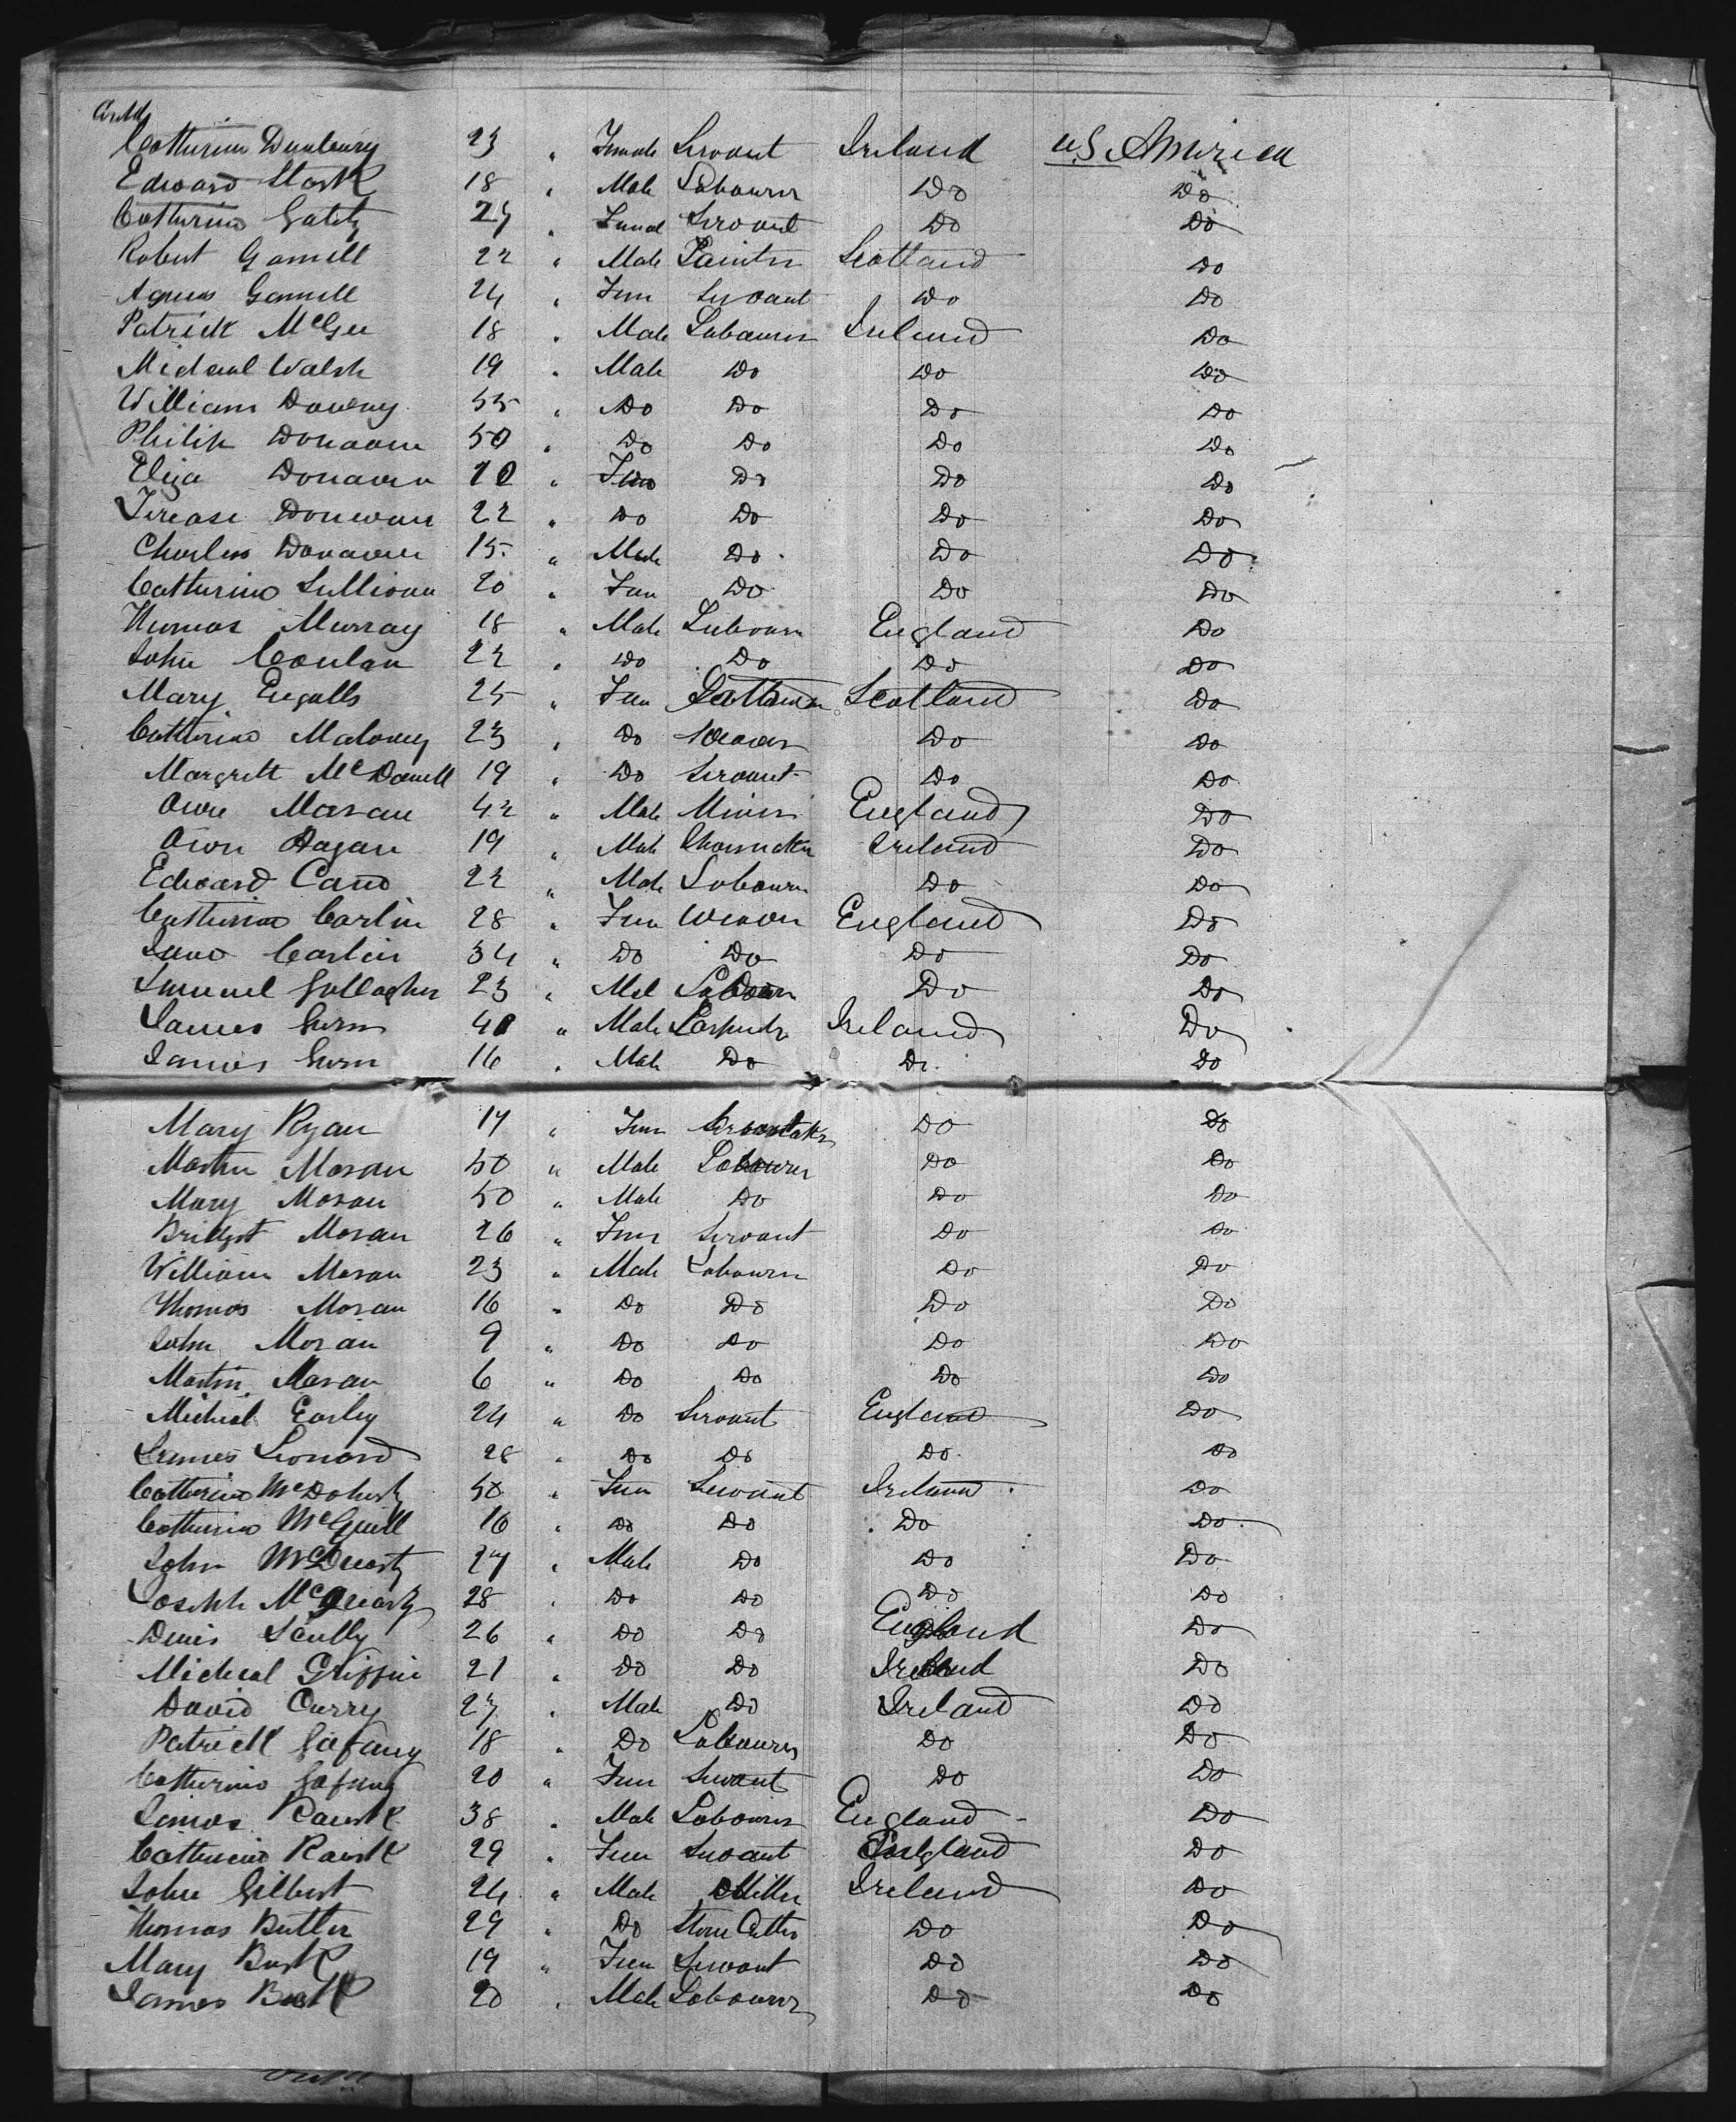 Catherine Dunleavy 23 " Female Servant Ireland US America
Edward Stark 18 " Male Labourer Do Do
Catherine 25 " Servant Do Do
Robert Gamell 22 " Male Painter Scotland Do
Agnes Gamell 24 " Fem Servant Do Do
Patrick McGee 18 " Male Labourer Ireland Do
Michael Walsh 19 " Male Do Do Do
William Downy 55 " Do Do Do Do
Philip Donavan 50 " Do Do Do Do
Eliza Donavan 20 " Fem Do Do Do
Donavan 22 " Do Do Do Do
Charles Donavan 15 " Male Do Do Do
Catherine Sullivan 20 " Fem Do Do Do
Thomas Murray 18 " Male Labourer England Do
John Conlan 22 " Do Do Do Do
Mary Engalls 25 " Fem Scotland Do
Catherine Maloney 23 " Do Weaver Do Do
Margrett McDonell 19 " Do Servant Do Do
Owen Moran 42 " Male Miner England Do
Owen Hagan 19 " Male Ireland Do
Edward Cano 22 " Male Labourer Do Do
Catherine Carlin 28 " Fem Weaver England Do
Jane Carlin 34 " Do Do Do Do
Samuel Gallagher 23 " Mal Labourer Do Do
James 40 " Male Ireland Do
James 16 " Male Do Do Do
Mary Ryan 17 " Fem Do Do
Martin Moran 50 " Male Labourer Do Do
Mary Moran 50 " Male Do Do Do
Bridget Moran 26 " Fem Servant Do Do
William Moran 23 " Male Labourer Do Do
Thomas Moran 16 " Do Do Do Do
John Moran 9 " Do Do Do Do
Martin Moran 6 " Do Do Do Do
Michael Earley 24 " Do Servant England Do
James Leonard 28 " Do Do Do Do
Catherine McDoherty 50 " Fem Servant Ireland Do
Catherine McGuill 16 " Do Do Do Do
John 27 " Male Do Do Do
Joseph 28 " Do Do Do Do
Denis Scully 26 " Do Do England Do
Micheal Griffin 21 " Do Do Ireland Do
David Curry 23 " Male Do Ireland Do
Patrick Gafany 18 " Do Labourer Do Do
Catherine Gafany 20 " Fem Servant Do Do
James 38 " Male Labourer England Do
Catherine 29 " Fem Servant England Do
John Gilbert 24 " Male Miller Ireland Do
Thomas Butler 29 " Do Stone Cutter Do Do
Mary Burk 19 " Fem Servant Do Do
James Burk 20 " Male Labourer Do Do